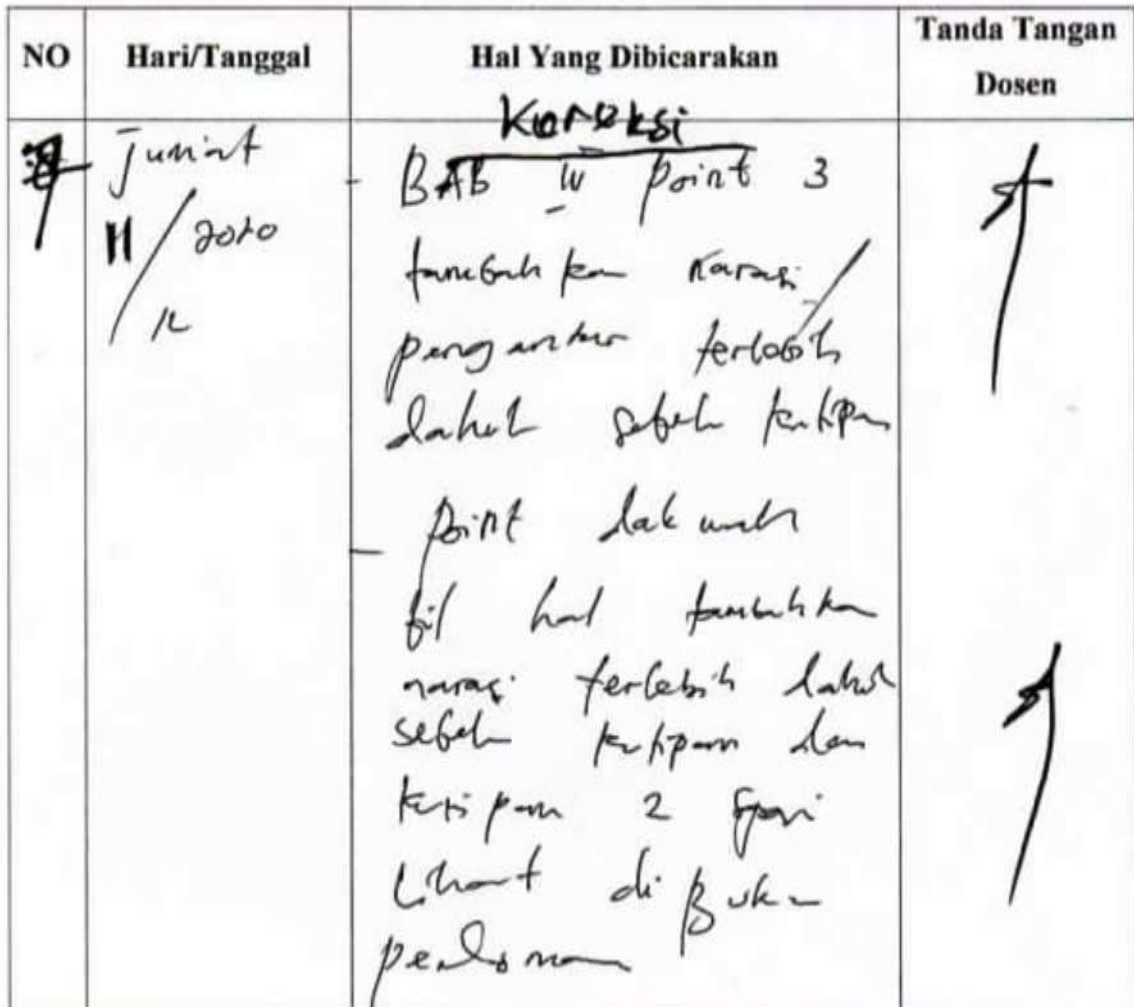 NO Hari/Tanggal Hal Yang Dibicarakan Tanda Tangan Dosen
Jum'at
11/2020
12
Koreksi
- BAB IV point 3
tambahkan narasi
pengantar terlebih
dahulu sebelum kutipan
- Point dakwah
bil hal tambahkan
narasi terlebih dahulu
sebelum kutipan dan
kutipan 2 spasi
Lihat di Buku
pedoman